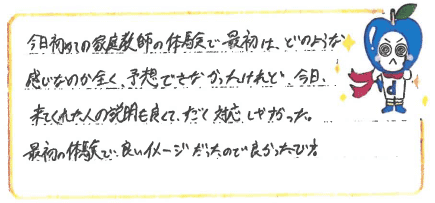 今日初めての家庭教師の体験で最初は、どのような
感じなのか全く、予想できなかったけれど、今日、
来てくれた人の説明も良くて、すごく対応しやすかった。
最初の体験で、良いイメージだったので良かったです。
d